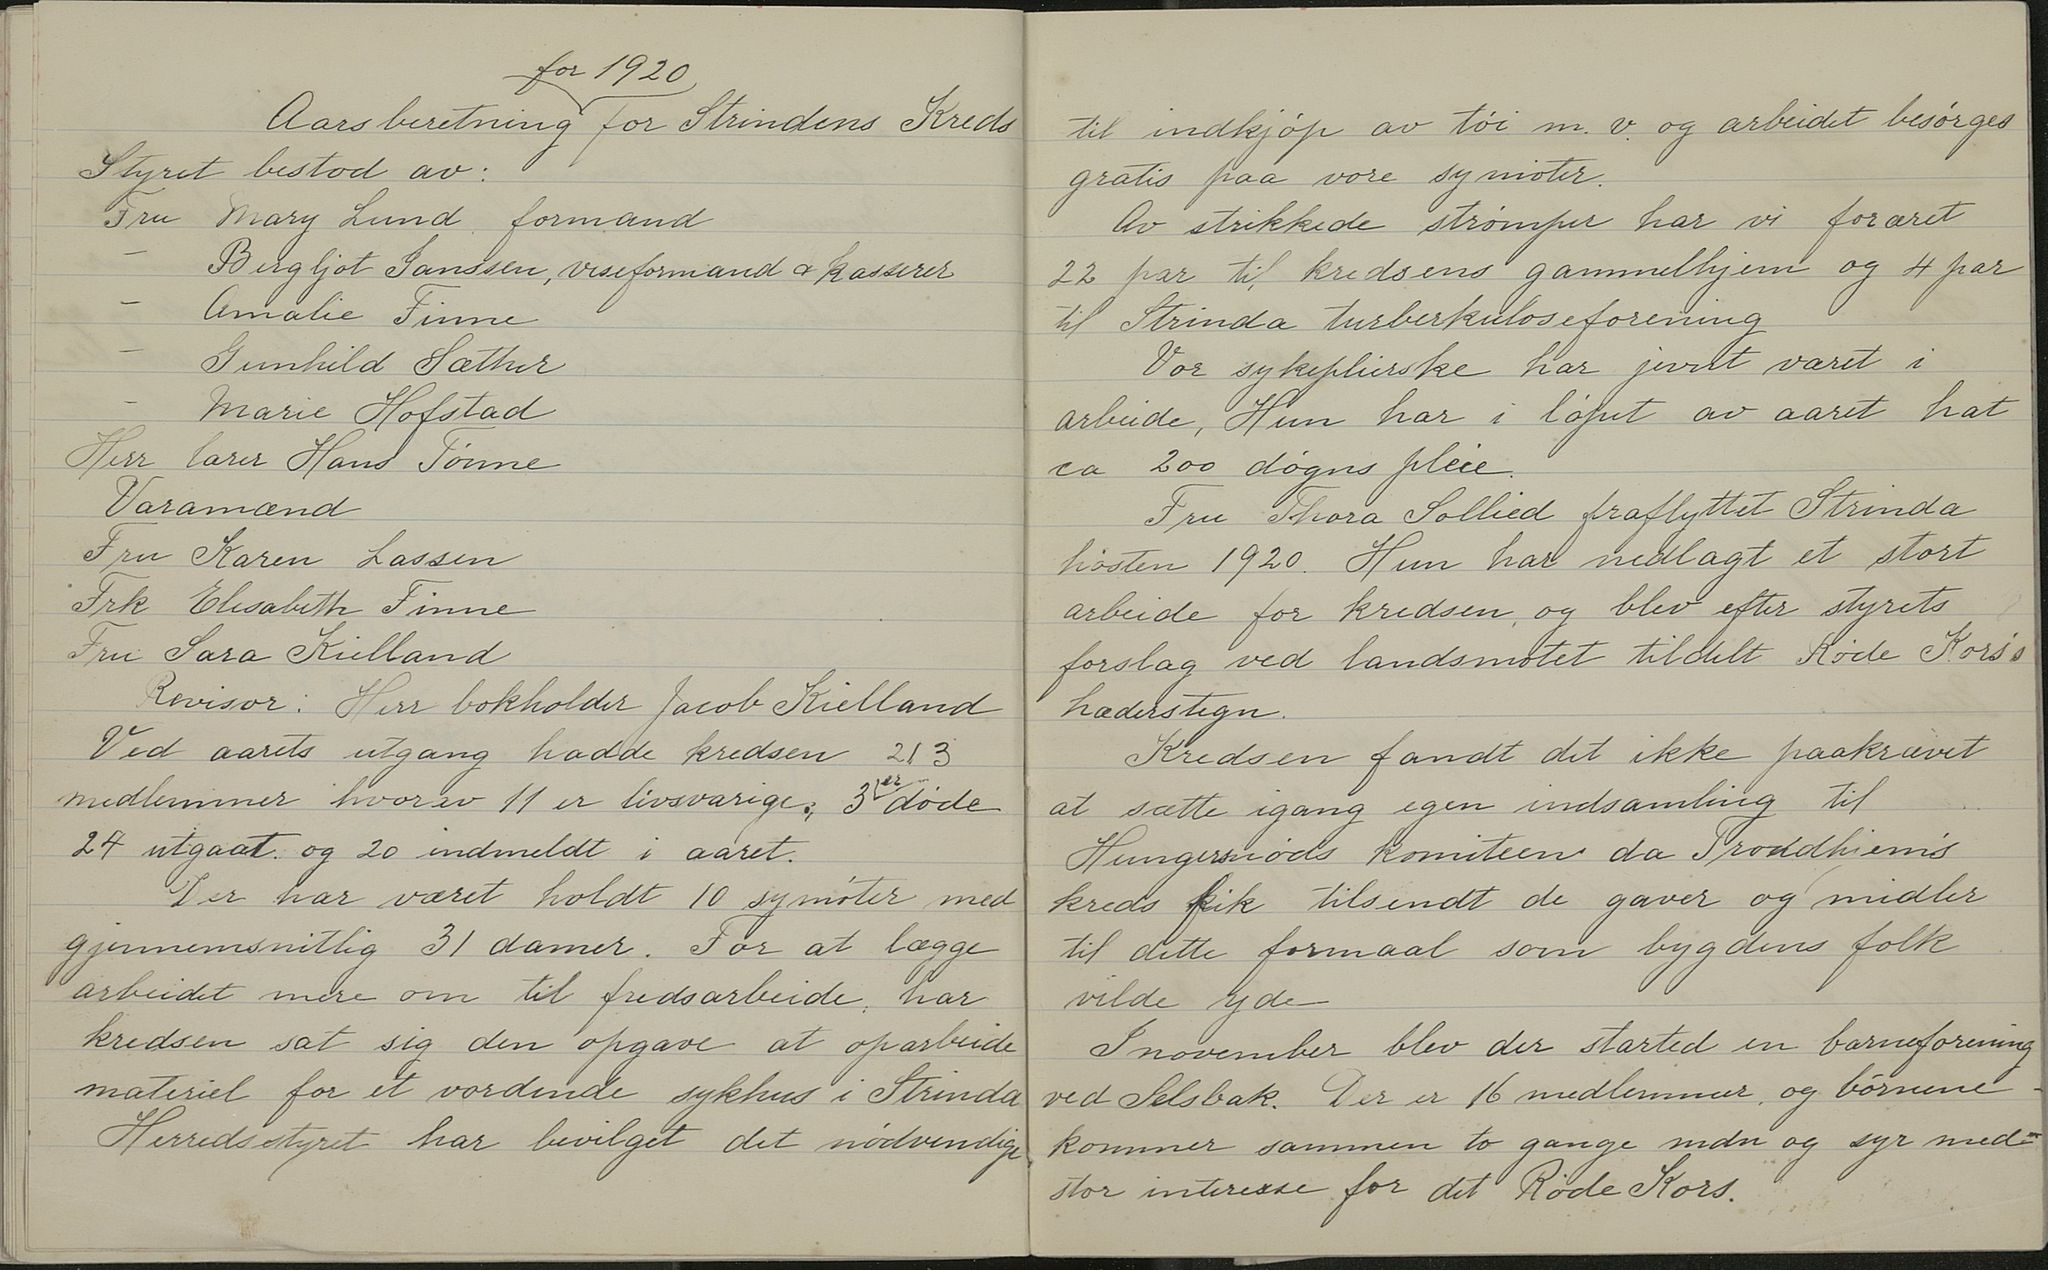 for 1920
Aarsberetning for Strindens Kreds
Styret bestod av:
Fru Mary Lund formand
- Bergljot Janssen, viseformand & kasserer
- Amalie Finne
- Gunhild Sæther
- Marie Hofstad
Herr lærer Hans Tønne
Varamænd
Fru Karen Lassen
Frk Elisabeth Finne
Fru Sara Kielland
Revisor: Herr bokholder Jacob Kielland
Ved aarets utgang hadde kredsen 213
medlemmer hvorav 11 er livsvarige; 3 er døde
24 utgaat og 20 indmeldt i aaret.
Der har været holdt 10 symøter med
gjennemsnitlig 31 damer. For at lægge
arbeidet mere om til fredsarbeide, har
kredsen sat sig den opgave at oparbeide
materiel for et vordende sykhus i Strinda
Herredsstyret har bevilget det nødvendige
til indkjøp av tøi m. v. og arbeidet besørges
gratis paa vore symøter.
Av strikkede strømper har vi foræret
22 par til kredsens gammelhjem og 4 par
til Strinda turberkuloseforening
Vor sykepleierske har jevnt været i
arbeide, Hun har i løpet av aaret hat
ca 200 døgns pleie.
Fru Thora Sollied fraflyttet Strinda
høsten 1920. Hun har nedlagt et stort
arbeide for kredsen, og blev efter styrets
forslag ved landsmøtet tildelt Røde Kors's
hæderstegn.
Kredsen fandt det ikke paakrævet
at sætte igang egen indsamling til
Hungersnøds komiteen da Trondhjems
kreds fik tilsendt de gaver og midler
til dette formaal som bygdens folk
vilde yde
I november blev der started en barneforening
ved Selsbak. Der er 16 medlemmer, og børnene
kommer sammen to gange mdn og syr med
stor interesse for det Røde Kors.